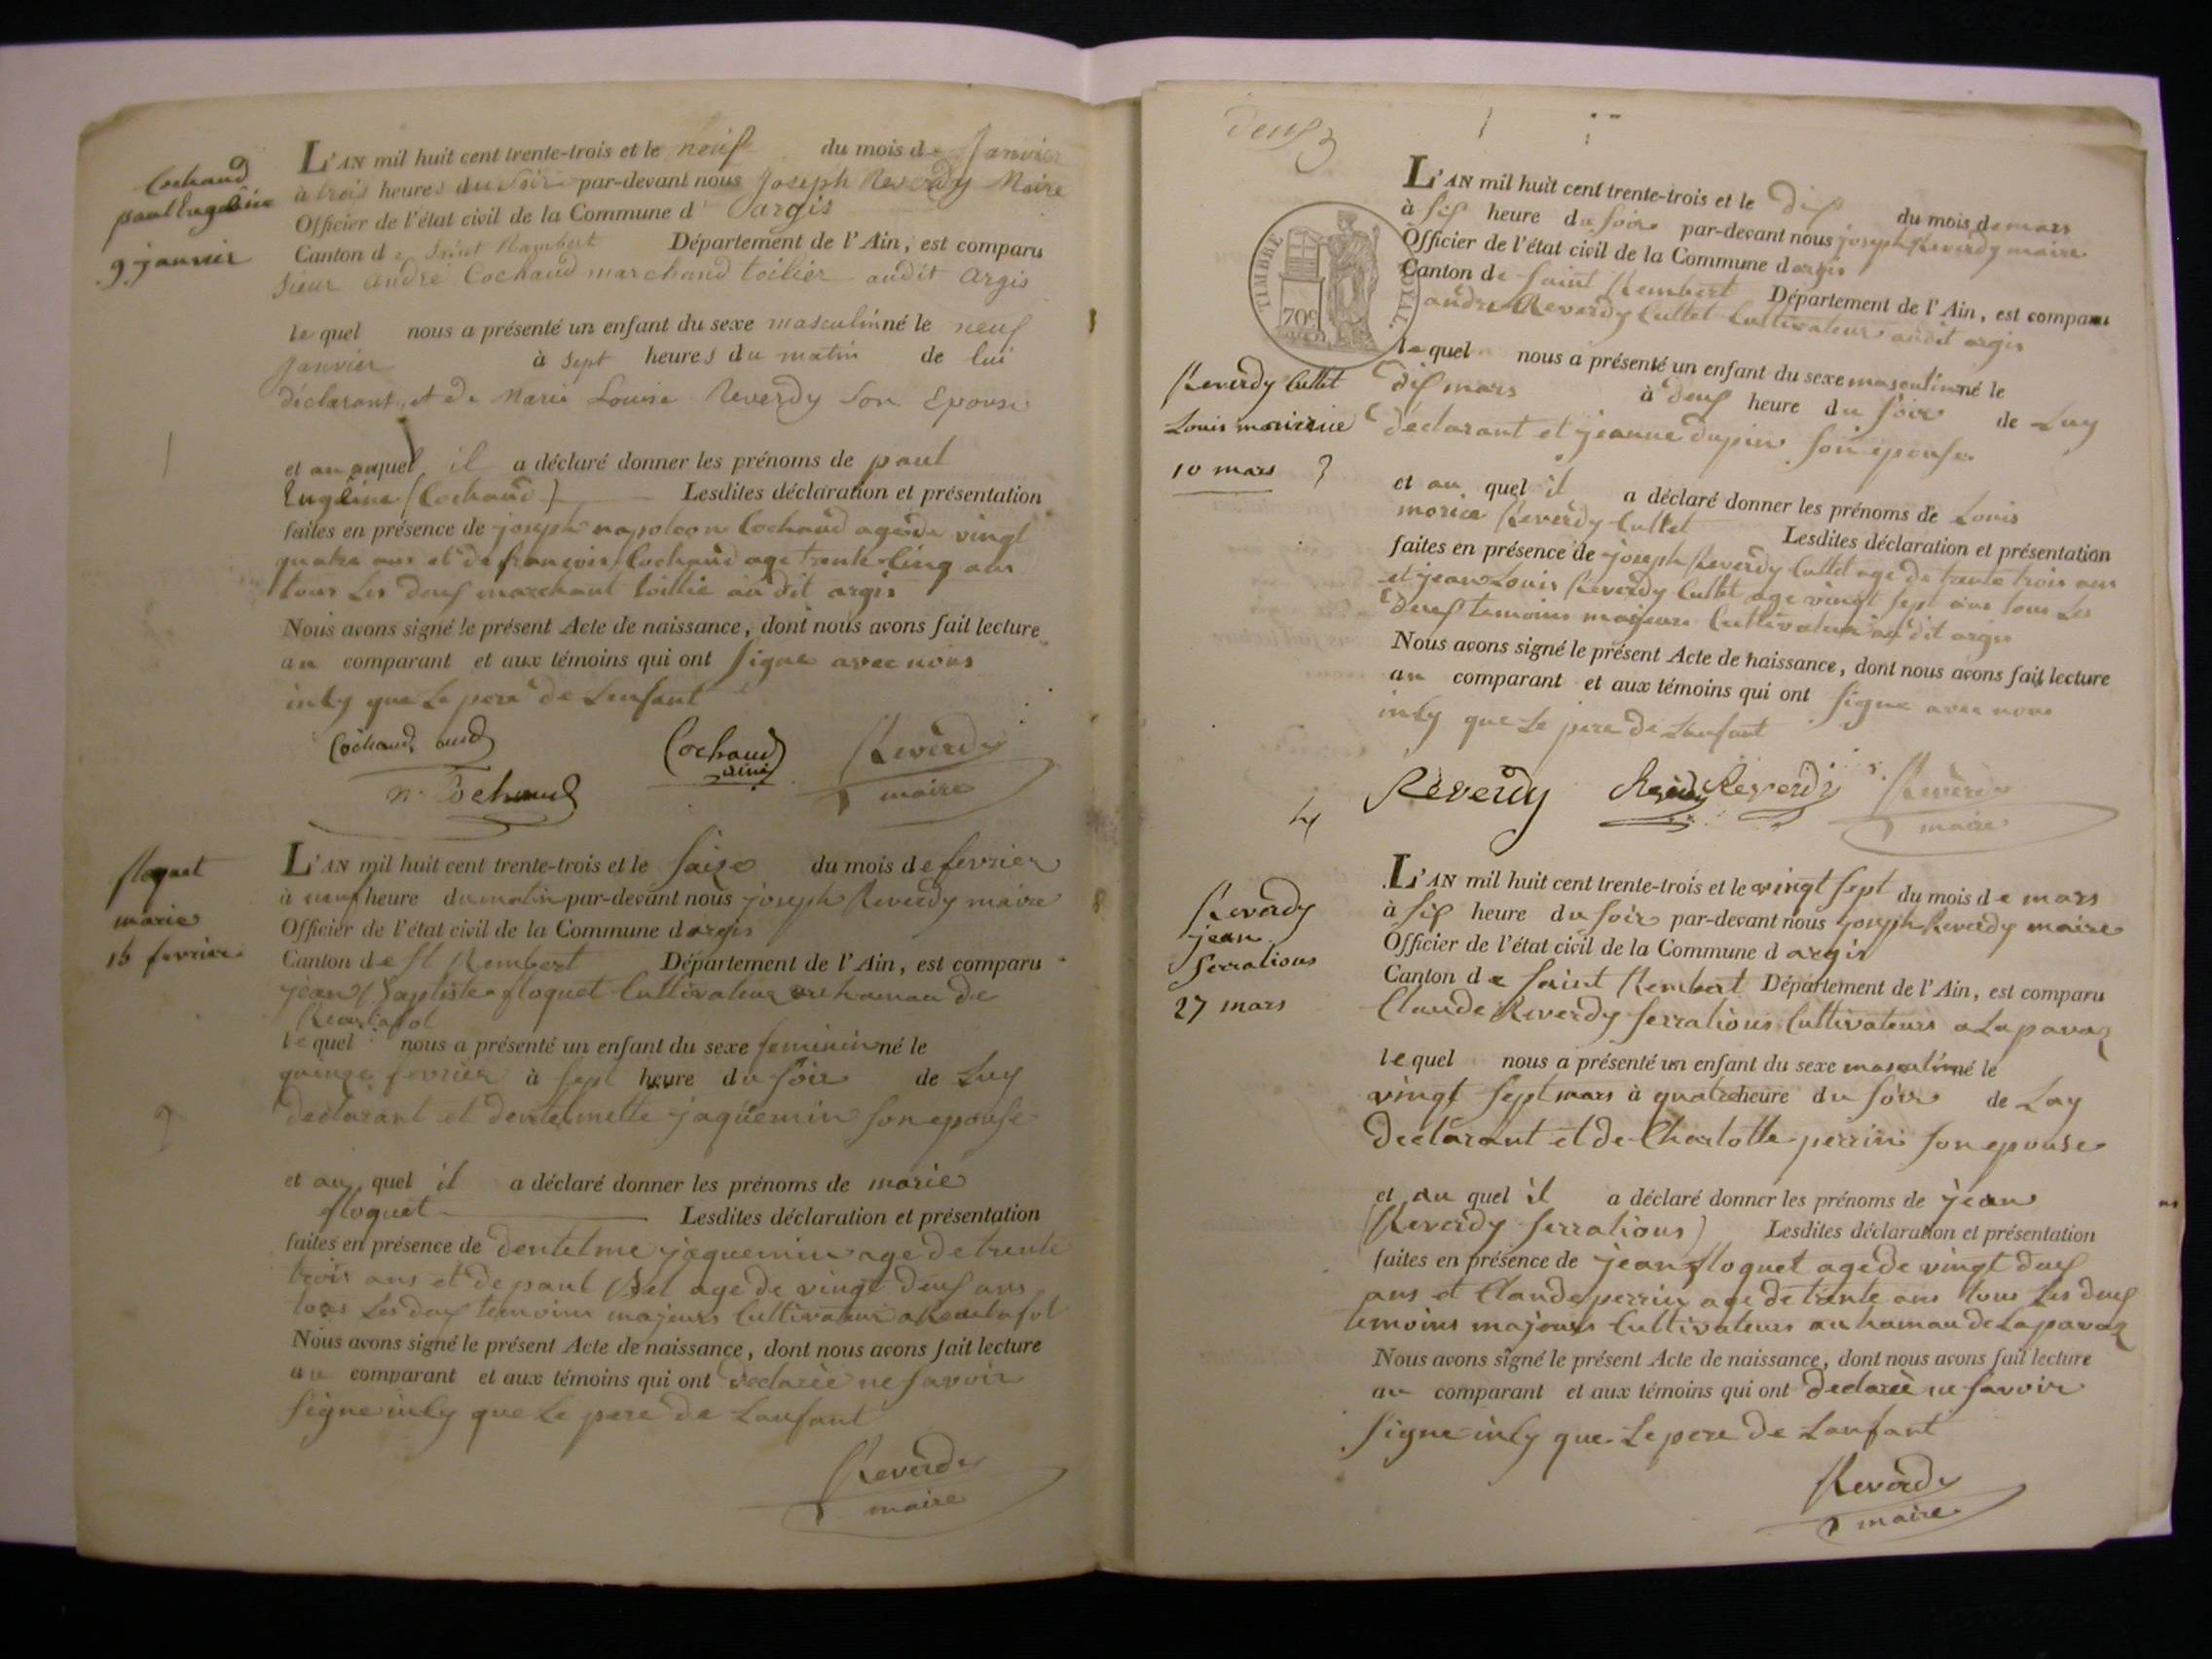 Cochaud
paul Eugéine
9 janvier
L'AN mil huit cent trente-trois et le neuf du mois de Janvier
à trois heures du soir par-devant nous Joseph Reverdy Maire
Officier de l'état civil de la Commune d'argis
Canton de Saint Rambert Département de l'Ain, est comparu
sieur André Cochaud marchand toilier audit Argis
le quel nous a présenté un enfant du sexe masculin né le neuf
Janvier à sept heures du matin de lui
déclarant, et de Marie Louise Reverdy son Epouse
et au quel il a déclaré donner les prénoms de paul
Eugéine (Cochaud) Lesdites déclaration et présentation
faites en présence de joseph napoleon Cochaud age de vingt
quatre ans et de françois Cochaud age trente cinq ans
tous Les deux marchant toillié au dit argis
Nous avons signé le présent Acte de naissance, dont nous avons fait lecture
au comparant et aux témoins qui ont signe avec nous
incy que Le pere de Lenfant
Cochaud Cochaud Reverdy
n. Cochaud maire
floquet
marie
15 fevrier
L'AN mil huit cent trente-trois et le saize du mois de fevrier
à neuf heure du matin par-devant nous joseph Reverdy maire
Officier de l'état civil de la Commune d argis
Canton de st Rembert Département de l'Ain, est comparu
jean Baptiste floquet Cultivateur au hamau de
le quel nous a présenté un enfant du sexe feminin né le
quinze fevrier à sept heure du soir de Luy
declarant et dentelmette jaquemin son epouse
et au quel il a déclaré donner les prénoms de marie
floquet Lesdites déclaration et présentation
faites en présence de dentelme jaquemin age de trente
trois ans et de paul age de vingt deux ans
tous Les deux temoins majeurs Cultivateur a
Nous avons signé le présent Acte de naissance, dont nous avons fait lecture
au comparant et aux témoins qui ont declaree ne savoir
signe incy que Le pere de Lanfant
Reverdy
maire
deux
TIMBRE ROYAL.
70c
L'AN mil huit cent trente-trois et le dix du mois de mars
à six heure du soir par-devant nous joseph Reverdy maire
Officier de l'état civil de la Commune d argis
Canton de Saint Rembert Département de l'Ain, est comparu
andre Reverdy Cullet Cultivateur audit argis
le quel nous a présenté un enfant du sexe masculin né le
Reverdy Cullet
Louis morice
10 mars
dix mars à deux heure du soir de Luy
declarant et jeanne dupin son epouse
et au quel il a déclaré donner les prénoms de Louis
morice Reverdy Cullet Lesdites déclaration et présentation
faites en présence de joseph Reverdy Cullet age de trente trois ans
et jean Louis Reverdy Cullet age vingt sept ans tous Les
deux temoins majeurs Cultivateur au dit argis
Nous avons signé le présent Acte de naissance, dont nous avons fait lecture
au comparant et aux témoins qui ont signe avec nous
incy que Le pere de Lanfant
Reverdy Reverdy Reverdy
maire
4
Reverdy
jean
serralious
27 mars
L'AN mil huit cent trente-trois et le vingt sept du mois de mars
à six heure du soir par-devant nous joseph Reverdy maire
Officier de l'état civil de la Commune d argis
Canton de saint Rembert Département de l'Ain, est comparu
Claude Reverdy serralious Cultivateurs a Lapavaz
le quel nous a présenté un enfant du sexe masculin né le
vingt sept mars à quatre heure du soir de Luy
declarant et de Charlotte perrin son epouse
et au quel il a déclaré donner les prénoms de jean
(Reverdy serralious) Lesdites déclaration et présentation
faites en présence de jean floquet age de vingt deux
ans et Claude perrin age de trente ans tous Les deux
temoins majeurs Cultivateurs au hamau de Lapavaz
Nous avons signé le présent Acte de naissance, dont nous avons fait lecture
au comparant et aux témoins qui ont declaree ne savoir
signe incy que Le pere de Lanfant
Reverdy
maire